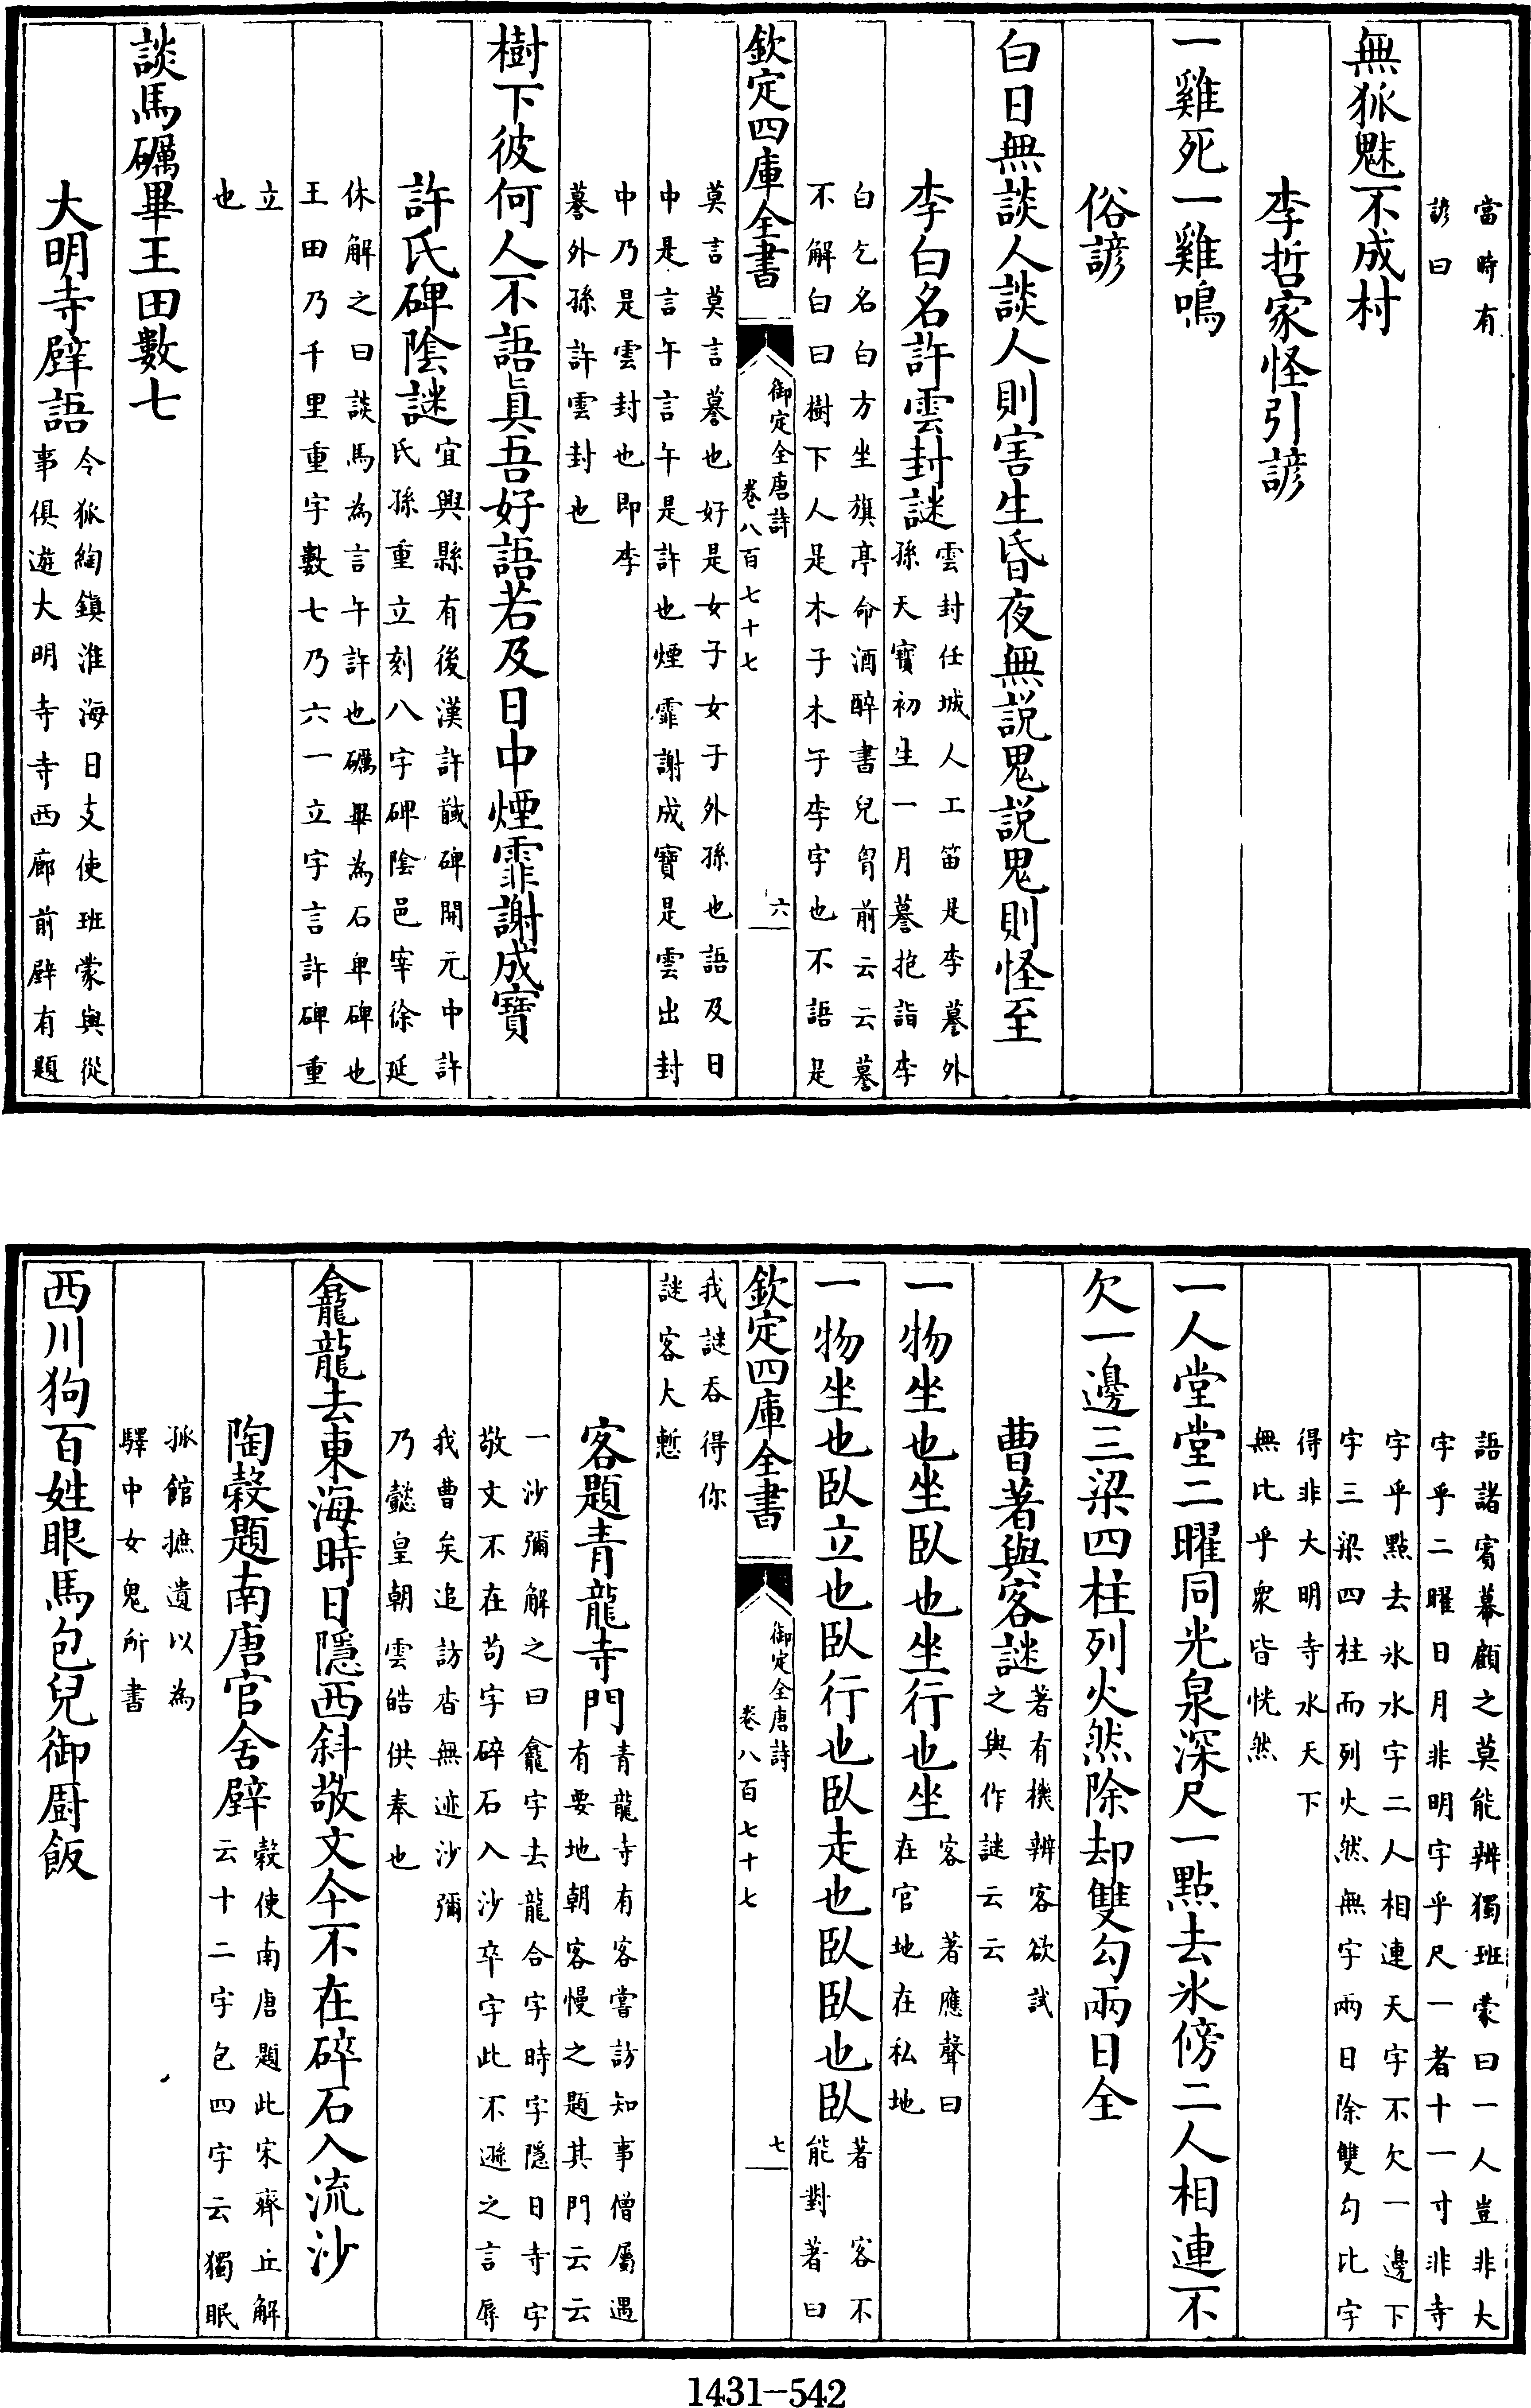 當時有
諺曰
無狐魅不成村
李哲家怪引諺
一雞死一雞鳴
俗諺
白日無談人談人則害生昏夜無説鬼説鬼則怪至
李白名許雲封謎
雲封任城人工笛是李謩外
孫天寶初生一月謩抱詣李
白乞名白方坐旗亭命酒醉書兒胷前云云謩
不解白曰樹下人是木子木子李字也不語是
欽定四庫全書
御定全唐詩
卷八百七十七
六
莫言莫言謩也好是女子女子外孫也語及日
中是言午言午是許也煙霏謝成寶是雲出封
中乃是雲封也即李
謩外孫許雲封也
樹下彼何人不語真吾好語若及日中煙霏謝成寶
許氏碑陰謎
宜興縣有後漢許䤋碑開元中許
氏孫重立刻八字碑陰邑宰徐延
休解之曰談馬為言午許也礪畢為石卑碑也
王田乃千里重字數七乃六一立字言許碑重
立
也
談馬礪畢王田數七
大明寺壁語
令狐綯鎮淮海日支使班蒙與從
事俱遊大明寺寺西廊前壁有題
語諸賓幕顧之莫能辨獨班蒙曰一人豈非大
字乎二曜日月非明字乎尺一者十一寸非寺
字乎點去氷水字二人相連天字不欠一邊下
字三梁四柱而列火然無字兩日除雙勾比字
得非大明寺水天下
無比乎衆皆恍然
一人堂堂二曜同光泉深尺一點去氷傍二人相連不
欠一邊三梁四柱列火然除却雙勾兩日全
曹著與客謎
著有機辨客欲試
之與作謎云云
一物坐也坐臥也坐行也坐
客
在官地在私地
著應聲曰
一物坐也臥立也臥行也臥走也臥臥也臥
著
能對著曰
客不
欽定四庫全書
御定全唐詩
卷八百七十七
七
我謎吞得你
謎客大慙
客題青龍寺門
青龍寺有客嘗訪知事僧屬遇
有要地朝客慢之題其門云云
一沙彌解之曰龕字去龍合字時字隱日寺字
敬文不在苟字碎石入沙卒字此不遜之言辱
我曹矣追訪杳無迹沙彌
乃懿皇朝雲皓供奉也
龕龍去東海時日隱西斜敬文今不在碎石入流沙
陶穀題南唐官舍壁
穀使南唐題此宋齊丘解
云十二字包四字云獨眠
狐館摭遺以為
驛中女鬼所書
西川狗百姓眼馬包兒御厨飯
1431-542